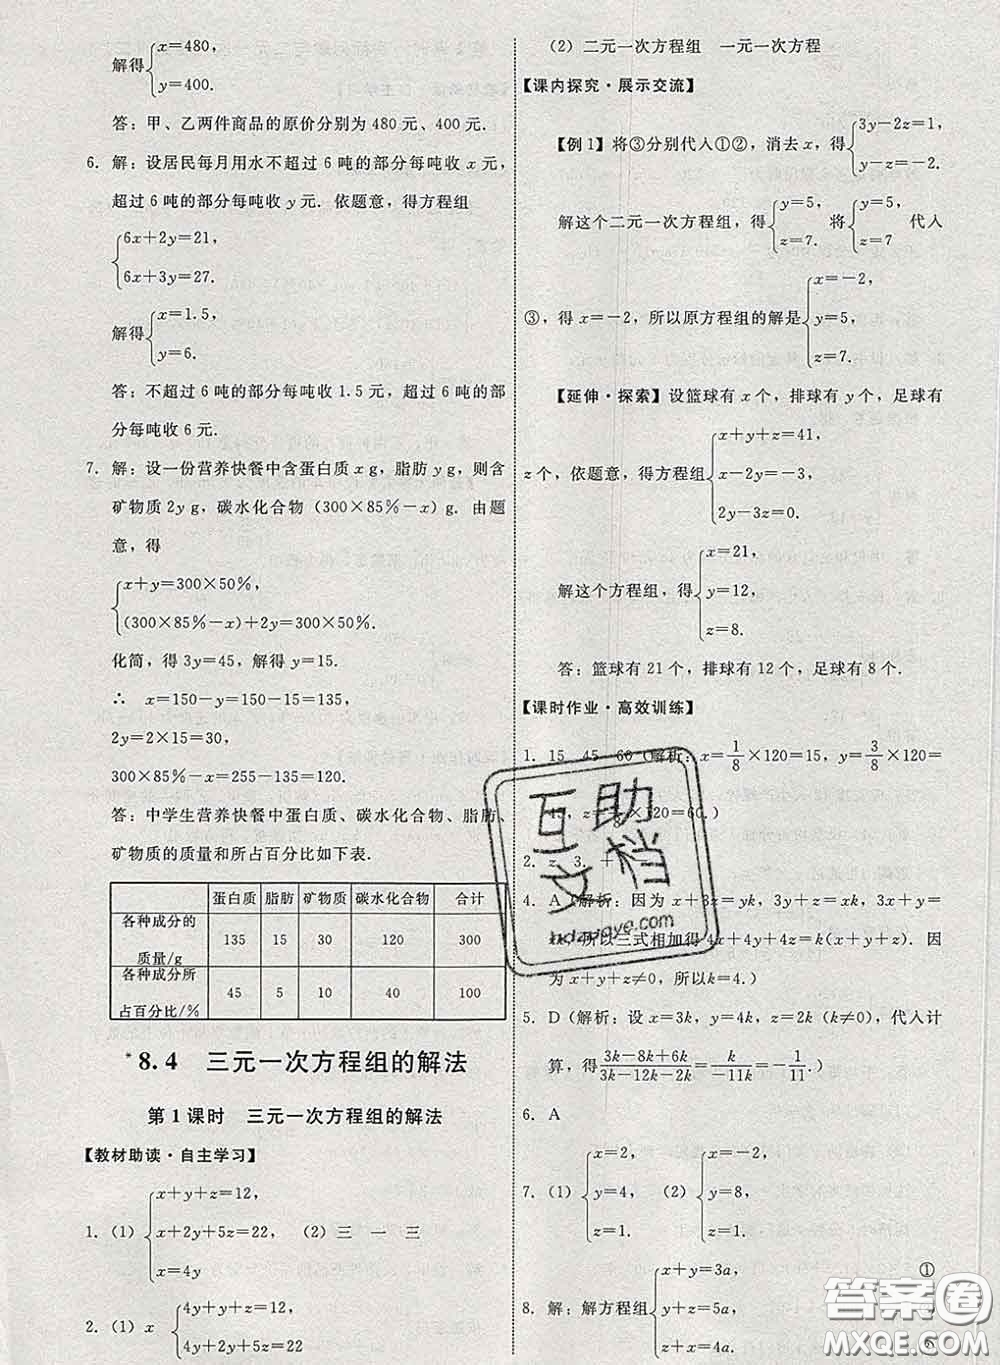 解得{x=480,
y=400.
答：甲、乙两件商品的原价分别为 480 元、400 元.
6. 解：设居民每月用水不超过 6 吨的部分每吨收 x 元，
超过 6 吨的部分每吨收 y 元. 依题意，得方程组
{6x+2y=21,
6x+3y=27.
解得{x=1.5,
y=6.
答：不超过 6 吨的部分每吨收 1.5 元，超过 6 吨的部
分每吨收 6 元.
7. 解：设一份营养快餐中含蛋白质 x g，脂肪 y g，则含
矿物质 2y g，碳水化合物（300×85%－x）g. 由题
意，得
{x+y=300×50%,
(300×85%－x)+2y=300×50%.
化简，得 3y=45，解得 y=15.
∴ x=150－y=150－15=135,
2y=2×15=30,
300×85%－x=255－135=120.
答：中学生营养快餐中蛋白质、碳水化合物、脂肪、
矿物质的质量和所占百分比如下表.
蛋白质 脂肪 矿物质 碳水化合物 合计
各种成分的质量/g 135 15 30 120 300
各种成分所占百分比/% 45 5 10 40 100
*8.4 三元一次方程组的解法
第 1 课时 三元一次方程组的解法
【教材助读·自主学习】
1.（1）{x+y+z=12,
x+2y+5z=22,
x=4y
（2）三 一 三
2.（1）x {4y+y+z=12,
4y+2y+5z=22
（2）二元一次方程组 一元一次方程
【课内探究·展示交流】
【例 1】将③分别代人①②，消去 x，得{3y－2z=1,
y－z=－2.
解这个二元一次方程组，得{y=5,
z=7. 将{y=5,
z=7 代人
③，得 x=－2，所以原方程组的解是{x=－2,
y=5,
z=7.
【延伸·探索】设篮球有 x 个，排球有 y 个，足球有
z 个，依题意，得方程组{x+y+z=41,
x－2y=－3,
2y－3z=0.
解这个方程组，得{x=21,
y=12,
z=8.
答：篮球有 21 个，排球有 12 个，足球有 8 个.
【课时作业·高效训练】
1. 15 45 60（解析：x=1/8×120=15，y=3/8×120=
×120=60.）
2. z 3.
4. A（解析：因为 x+3z=yk，3y+z=xk，3x+y=
所以三式相加得 4x+4y+4z=k(x+y+z). 因
为 x+y+z≠0，所以 k=4.）
5. D（解析：设 x=3k，y=4k，z=2k（k≠0），代入计
算，得 (3k－8k+6k)/(3k－12k－2k)=k/(－11k)=－1/11.）
6. A
7.（1）{x=2,
y=4,
z=1.
（2）{x=2,
y=8,
z=1.
8. 解：解方程组{x+y=3a, ①
y+z=5a,
z+x=4a.
互助文档
答案圈
MXQE.COM